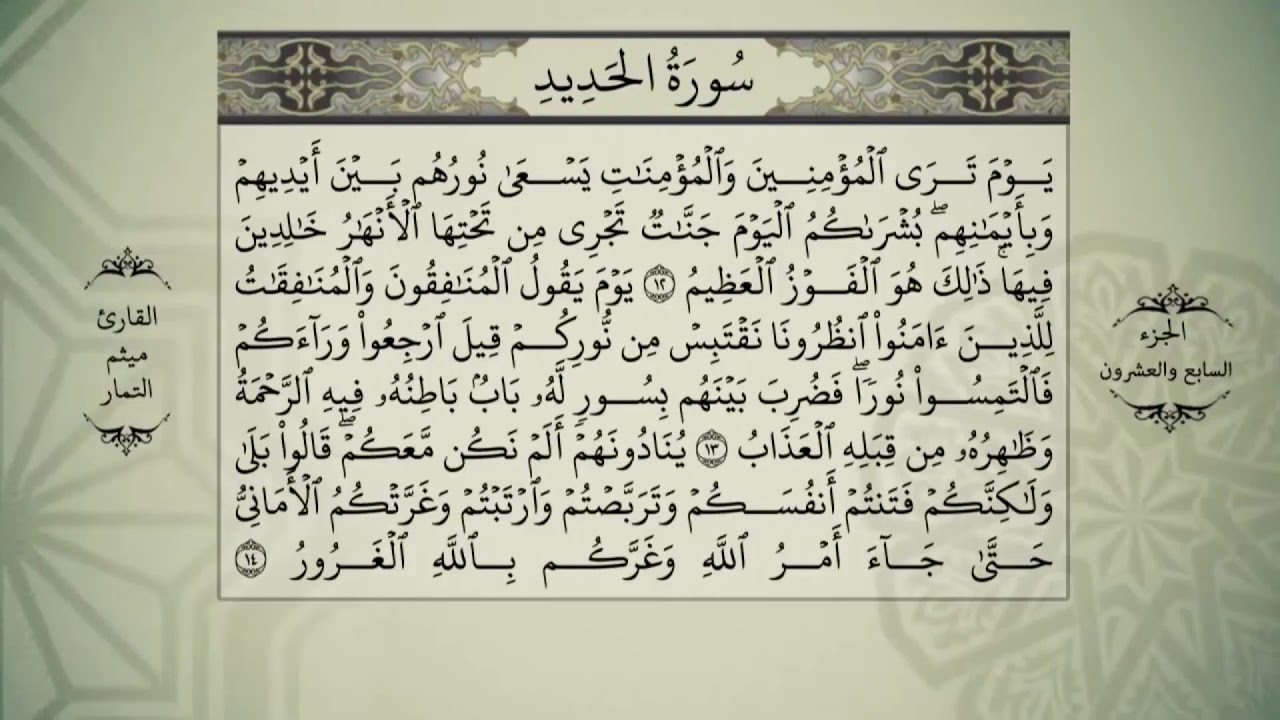 سُورَةُ الحَدِيدِ
يَوْمَ تَرَى ٱلْمُؤْمِنِينَ وَٱلْمُؤْمِنَٰتِ يَسْعَىٰ نُورُهُم بَيْنَ أَيْدِيهِمْ
وَبِأَيْمَٰنِهِمۖ بُشْرَىٰكُمُ ٱلْيَوْمَ جَنَّٰتٌ تَجْرِى مِن تَحْتِهَا ٱلْأَنْهَٰرُ خَٰلِدِينَ
فِيهَاۚ ذَٰلِكَ هُوَ ٱلْفَوْزُ ٱلْعَظِيمُ ١٢ يَوْمَ يَقُولُ ٱلْمُنَٰفِقُونَ وَٱلْمُنَٰفِقَٰتُ
لِلَّذِينَ ءَامَنُوا۟ ٱنظُرُونَا نَقْتَبِسْ مِن نُّورِكُمْ قِيلَ ٱرْجِعُوا۟ وَرَآءَكُمْ
فَٱلْتَمِسُوا۟ نُورًاۖ فَضُرِبَ بَيْنَهُم بِسُورٍ لَّهُۥ بَابٌۢ بَاطِنُهُۥ فِيهِ ٱلرَّحْمَةُ
وَظَٰهِرُهُۥ مِن قِبَلِهِ ٱلْعَذَابُ ١٣ يُنَادُونَهُمْ أَلَمْ نَكُن مَّعَكُمْۖ قَالُوا۟ بَلَىٰ
وَلَٰكِنَّكُمْ فَتَنتُمْ أَنفُسَكُمْ وَتَرَبَّصْتُمْ وَٱرْتَبْتُمْ وَغَرَّتْكُمُ ٱلْأَمَانِىُّ
حَتَّىٰ جَآءَ أَمْرُ ٱللَّهِ وَغَرَّكُم بِٱللَّهِ ٱلْغَرُورُ ١٤
الجزء
السابع والعشرون
القارئ
ميثم
التمار